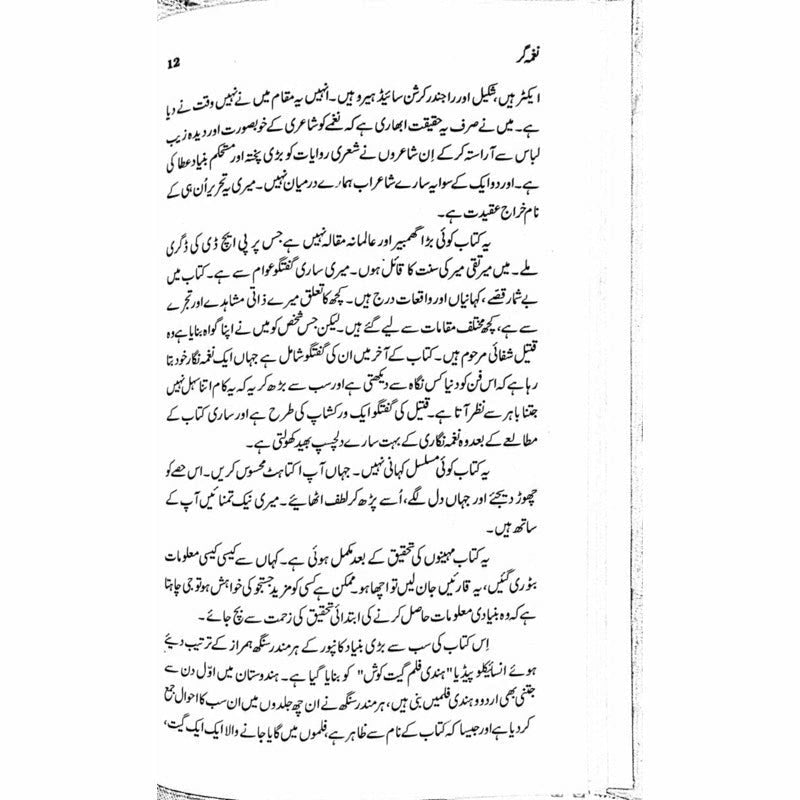 نغمہ گر
12
ایکٹر ہیں، شکیل اور راجندر کرشن سائیڈ ہیرو ہیں۔ انہیں یہ مقام میں نے نہیں وقت نے دیا
ہے۔ میں نے صرف یہ حقیقت ابھاری ہے کہ نغمے کو شاعری کے خوبصورت اور دیدہ زیب
لباس سے آراستہ کر کے اِن شاعروں نے شعری روایات کو بڑی پختہ اور مستحکم بنیاد عطا کی
ہے۔ اور دو ایک کے سوا یہ سارے شاعر اب ہمارے درمیان نہیں۔ میری یہ تحریر اُن ہی کے
نام خراجِ عقیدت ہے۔
یہ کتاب کوئی بڑا گھمبیر اور عالمانہ مقالہ نہیں ہے جس پر پی ایچ ڈی کی ڈگری
ملے۔ میں میر تقی میر کی سنت کا قائل ہوں۔ میری ساری گفتگو عوام سے ہے۔ کتاب میں
بے شمار قصے، کہانیاں اور واقعات درج ہیں۔ کچھ کا تعلق میرے ذاتی مشاہدے اور تجربے
سے ہے، کچھ مختلف مقامات سے لیے گئے ہیں۔ لیکن جس شخص کو میں نے اپنا گواہ بنایا ہے وہ
قتیل شفائی مرحوم ہیں۔ کتاب کے آخر میں ان کی گفتگو شامل ہے جہاں ایک نغمہ نگار خود بتا
رہا ہے کہ اس فن کو دنیا کس نگاہ سے دیکھتی ہے اور سب سے بڑھ کر یہ کہ یہ کام اتنا سہل نہیں
جتنا باہر سے نظر آتا ہے۔ قتیل کی گفتگو ایک ورکشاپ کی طرح ہے اور ساری کتاب کے
مطالعے کے بعد وہ نغمہ نگاری کے بہت سارے دلچسپ بھید کھولتی ہے۔
یہ کتاب کوئی مسلسل کہانی نہیں۔ جہاں آپ اکتاہٹ محسوس کریں۔ اس حصے کو
چھوڑ دیجئے اور جہاں دل لگے، اُسے پڑھ کر لطف اٹھائیے۔ میری نیک تمنائیں آپ کے
ساتھ ہیں۔
یہ کتاب مہینوں کی تحقیق کے بعد مکمل ہوئی ہے۔ کہاں سے کیسی کیسی معلومات
بٹوری گئیں، یہ قارئین جان لیں تو اچھا ہو۔ ممکن ہے کسی کو مزید جستجو کی خواہش ہو تو جی چاہتا
ہے کہ وہ بنیادی معلومات حاصل کرنے کی ابتدائی تحقیق کی زحمت سے بچ جائے۔
اِس کتاب کی سب سے بڑی بنیاد کانپور کے ہرمندر سنگھ ہمراز کے ترتیب دیئے
ہوئے انسائیکلو پیڈیا "ہندی فلم گیت کوش" کو بنایا گیا ہے۔ ہندوستان میں اوّل دن سے
جتنی بھی اردو و ہندی فلمیں بنی ہیں، ہرمندر سنگھ نے ان چھ جلدوں میں ان سب کا احوال جمع
کر دیا ہے اور جیسا کہ کتاب کے نام سے ظاہر ہے، فلموں میں گایا جانے والا ایک ایک گیت،